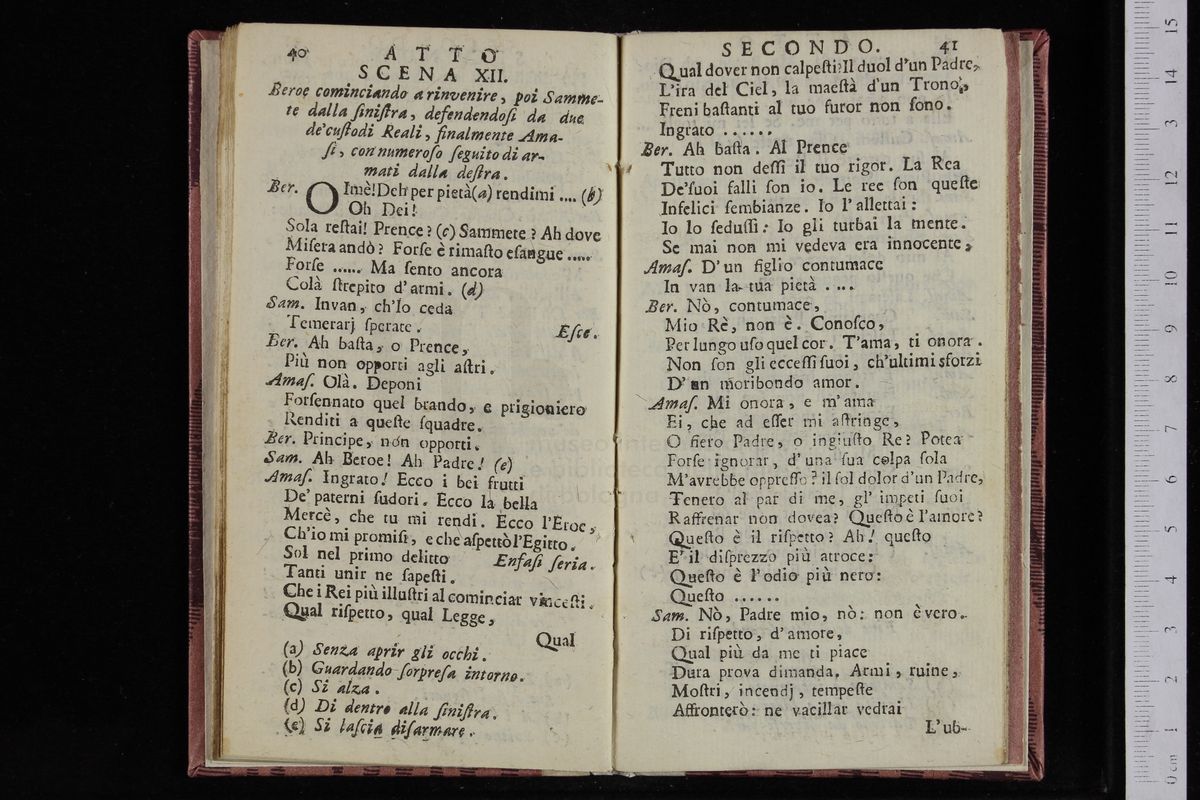 40
ATTO
SCENA XII.
Beroe cominciando a rinvenire, poi Samme-
te dalla ſiniſtra, defendendoſi da due
de'cuſtodi Reali, finalmente Ama-
ſi, con numeroſo ſeguito di ar-
mati dalla deſtra.
Ber. OImè! Deh per pietà (a) rendimi .... (b)
Oh Dei!
Sola reſtai! Prence? (c) Sammete? Ah dove
Miſera andò? Forſe è rimaſto eſangue .....
Forſe ...... Ma ſento ancora
Colà ſtrepito d'armi. (d)
Sam. Invan, ch'Io ceda
Temerarj ſperate. Eſce.
Ber. Ah baſta, o Prence,
Più non opporti agli aſtri.
Amaſ. Olà. Deponi
Forſennato quel brando, e prigioniero
Renditi a queſte ſquadre.
Ber. Principe, non opporti.
Sam. Ah Beroe! Ah Padre! (e)
Amaſ. Ingrato! Ecco i bei frutti
De' paterni ſudori. Ecco la bella
Mercè, che tu mi rendi. Ecco l'Eroe,
Ch'io mi promiſi, e che aſpettò l'Egitto.
Sol nel primo delitto Enfaſi ſeria.
Tanti unir ne ſapeſti.
Che i Rei più illuſtri al cominciar vinceſti.
Qual riſpetto, qual Legge,
Qual
(a) Senza aprir gli occhi.
(b) Guardando ſorpreſa intorno.
(c) Si alza.
(d) Di dentro alla ſiniſtra.
(e) Si laſcia diſarmare.
SECONDO. 41
Qual dover non calpeſti? Il duol d'un Padre,
L'ira del Ciel, la maeſtà d'un Trono,
Freni baſtanti al tuo furor non ſono.
Ingrato ......
Ber. Ah baſta. Al Prence
Tutto non deſſi il tuo rigor. La Rea
De'ſuoi falli ſon io. Le ree ſon queſte
Infelici ſembianze. Io l'allettai:
Io lo ſeduſſi: Io gli turbai la mente.
Se mai non mi vedeva era innocente,
Amaſ. D'un figlio contumace
In van la tua pietà ....
Ber. Nò, contumace,
Mio Rè, non è. Conoſco,
Per lungo uſo quel cor. T'ama, ti onora.
Non ſon gli ecceſſi ſuoi, ch'ultimi sforzi
D'un moribondo amor.
Amaſ. Mi onora, e m'ama
Ei, che ad eſſer mi aſtringe,
O fiero Padre, o ingiuſto Re? Potea
Forſe ignorar, d'una ſua colpa ſola
M'avrebbe oppreſſo? il ſol dolor d'un Padre,
Tenero al par di me, gl' impeti ſuoi
Raffrenar non dovea? Queſto è l'amore?
Queſto è il riſpetto? Ah! queſto
E' il diſprezzo più atroce:
Queſto è l'odio più nero:
Queſto ......
Sam. Nò, Padre mio, nò: non è vero.
Di riſpetto, d'amore,
Qual più da me ti piace
Dura prova dimanda. Armi, ruine,
Moſtri, incendj, tempeſte
Affronterò: ne vacillar vedrai
L'ub-